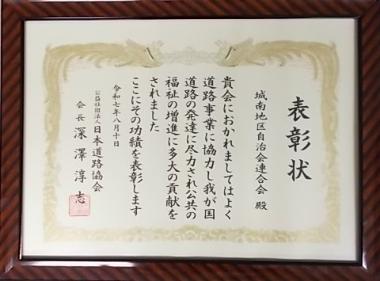 表彰状
城南地区自治会連合会 殿
貴会におかれましてはよく
道路事業に協力し我が国
道路の発達に尽力され公共の
福祉の増進に多大の貢献を
されました
ここにその功績を表彰します
令和七年八月十日
公益社団法人 日本道路協会
会長 深澤淳志